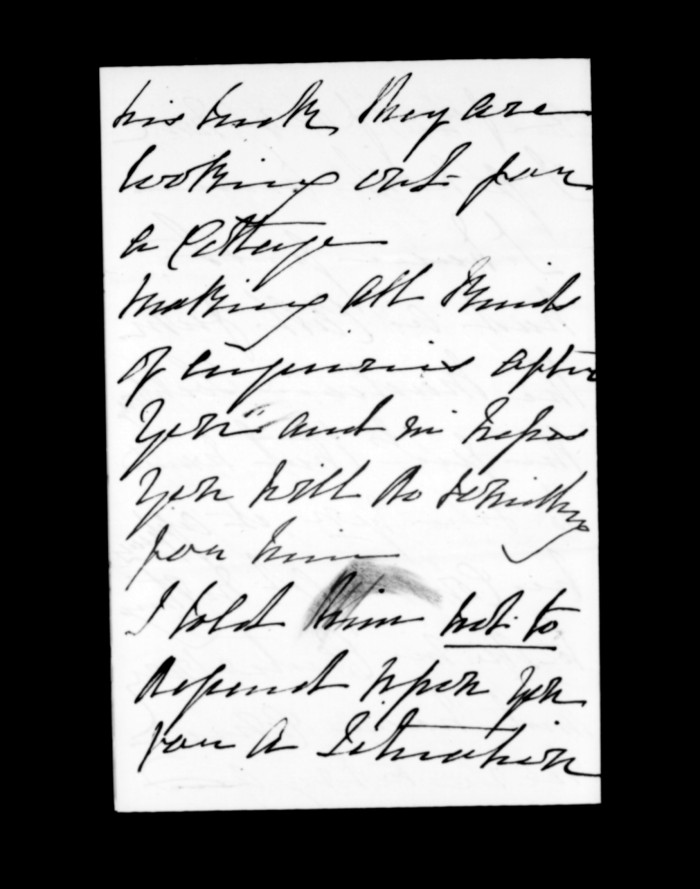 this week, they are
looking out for
a Cottage
making all kinds
of enquiries after
you and in hopes
you will do something
for him
I told him not to
depend upon you
for a Situation